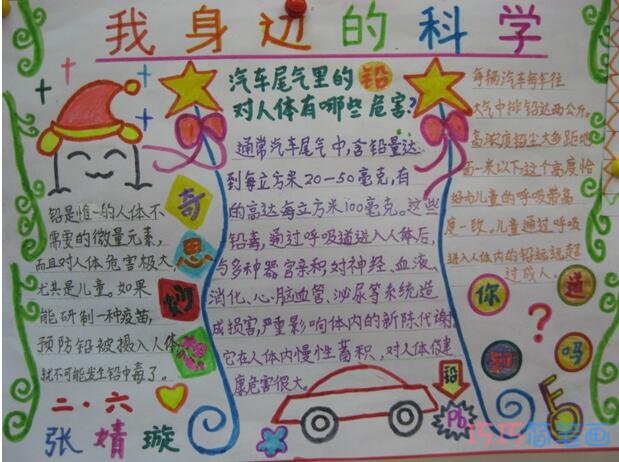 我身边的科学
铅是惟一的人体不
需要的微量元素,
而且对人体危害极大,
尤其是儿童。如果
能研制一种疫苗,
预防铅被摄入人体
就不可能发生铅中毒了。
奇
思
妙
想
二·六
张婧璇
汽车尾气里的铅
对人体有哪些危害?
通常汽车尾气中,含铅量达
到每立方米20-50毫克,有
的高达每立方米100毫克。这些
铅毒,通过呼吸道进入人体后,
与多种器官亲积对神经、血液、
消化、心、脑血管、泌尿等系统造
成损害,严重影响体内的新陈代谢
它在人体内慢性蓄积、对人体健
康危害很大。
每辆汽车每年往
大气中排铅达两公斤。
高浓度铅尘大多距地
面一米以下,这个高度恰
好与儿童的呼吸带高
度一致。儿童通过呼吸
进入人体内的铅远远超
过成人。
你
知
道
吗
?
铅
Pb
巧巧简笔画